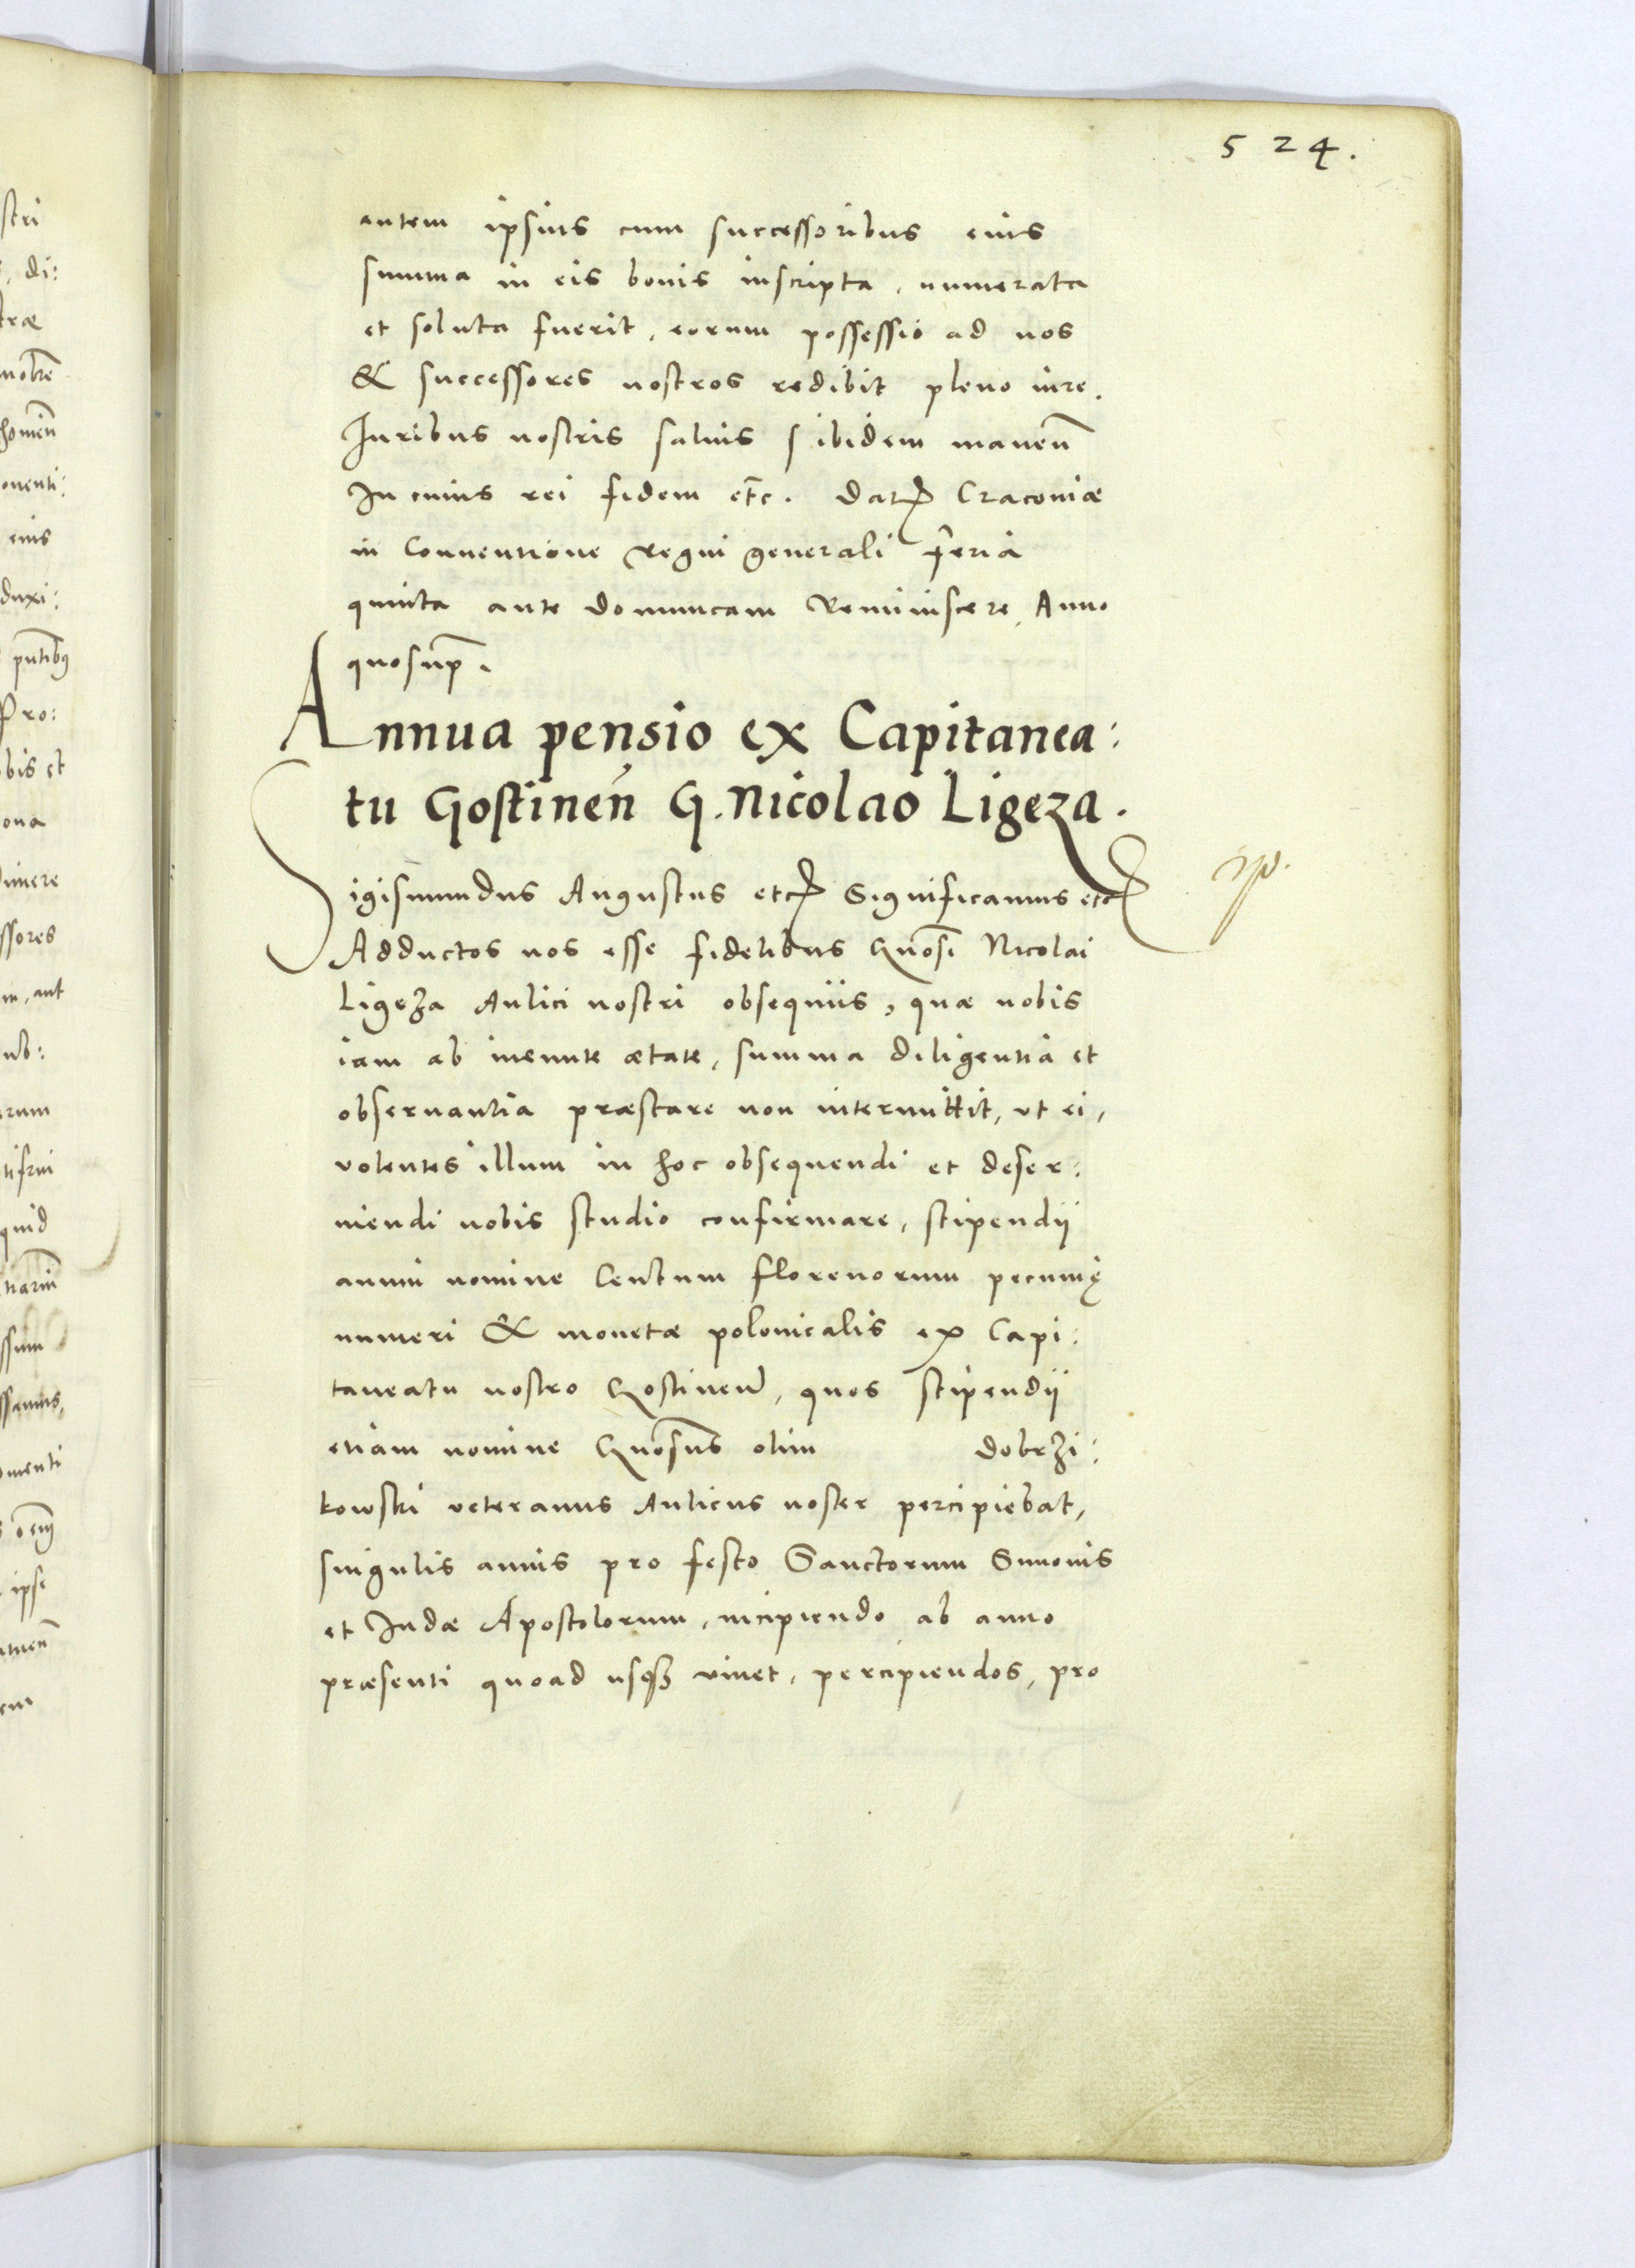 524.
autem ipsius cum successoribus eius
summa in eis bonis inscripta, numerata
et soluta fuerit, eorum possessio ad nos
& successores nostros redibit pleno iure.
Iuribus nostris saluis ibidem manen̄
In cuius rei fidem etc. Dat Cracoviæ
in Conventione Regni generali feria
quinta ante dominicam Reminiscere, Anno
quosup̄.
Annua pensio ex Capitanea:
tu Gostinen̄ G. Nicolao Ligeza.
Sigismundus Augustus etc Significamus etc
Adductos nos esse fidelibus Gnosi Nicolai
Ligeza Aulici nostri obsequiis, quæ nobis
iam ab ineunte ætate, summa diligentia et
obseruantia præstare non intermittit, ut ei,
volentes illum in hoc obsequendi et deser:
uiendi nobis studio confirmare, stipendij
annui nomine Centum florenorum pecunię
numeri & monetæ polonicalis ex Capi:
taneatu nostro Gostinen̄, quos stipendij
etiam nomine Gnosus olim Dobrzi:
kowski veteranus Aulicus noster percipiebat,
singulis annis pro festo Sanctorum Simonis
et Iudæ Apostolorum, incipiendo ab anno
præsenti quoad usqꝫ viuet, percipiendos, pro